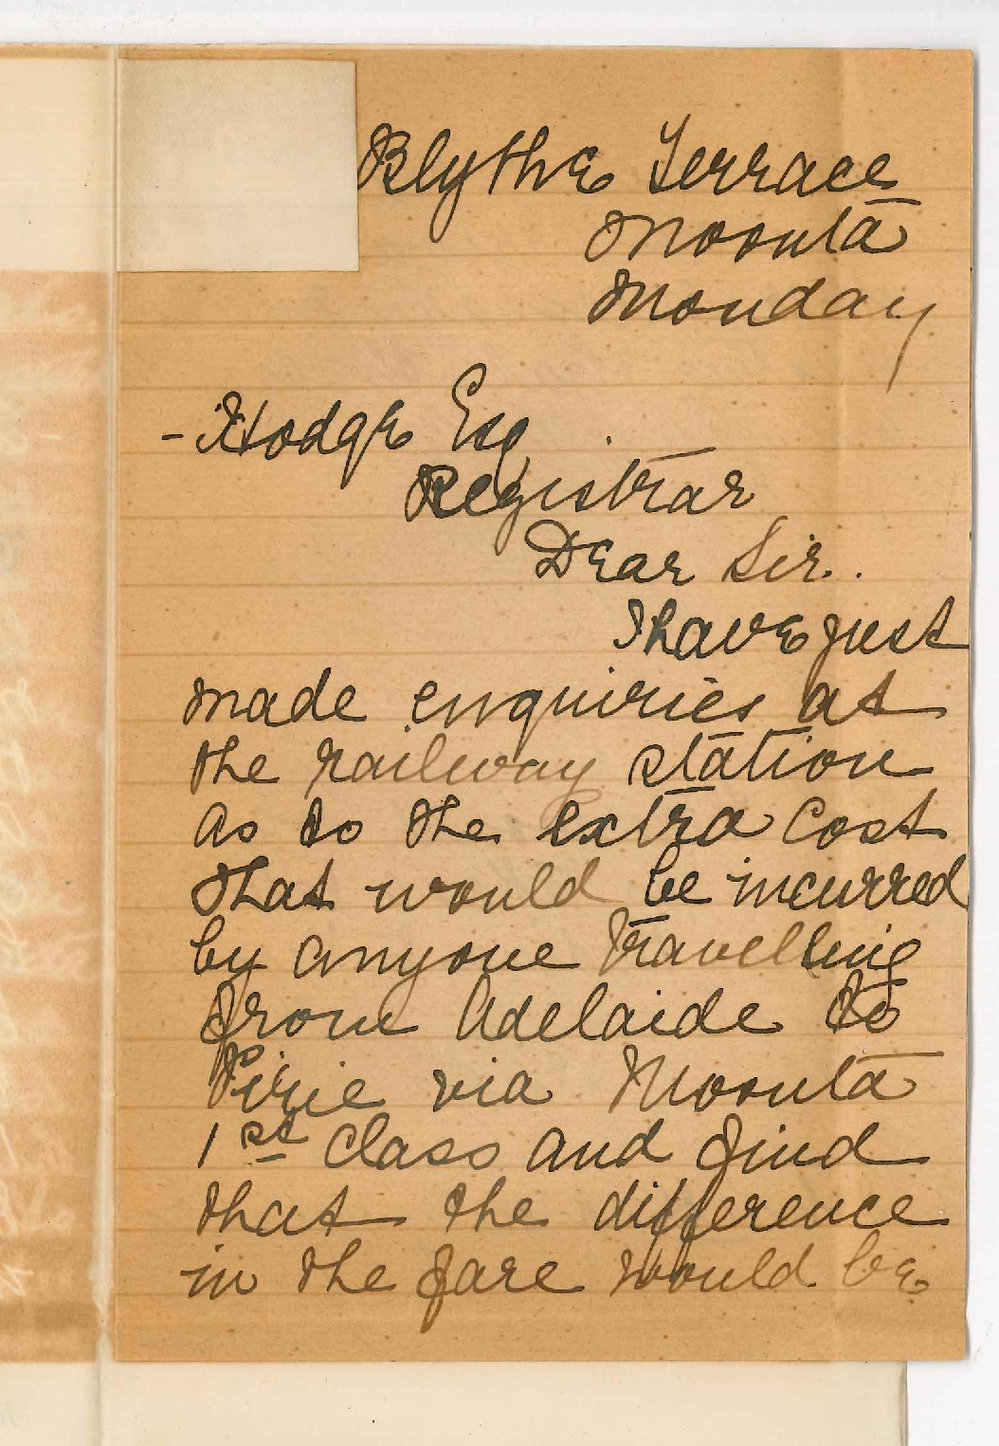 Blythe Terrace
Moonta
Monday
- Hodge Esq
Registrar
Dear Sir..
I have just
made enquiries at
the railway station
as to the extra cost
that would be incurred
by anyone travelling
from Adelaide to
Pirie via Moonta
1st class and find
that the difference
in the fare would be